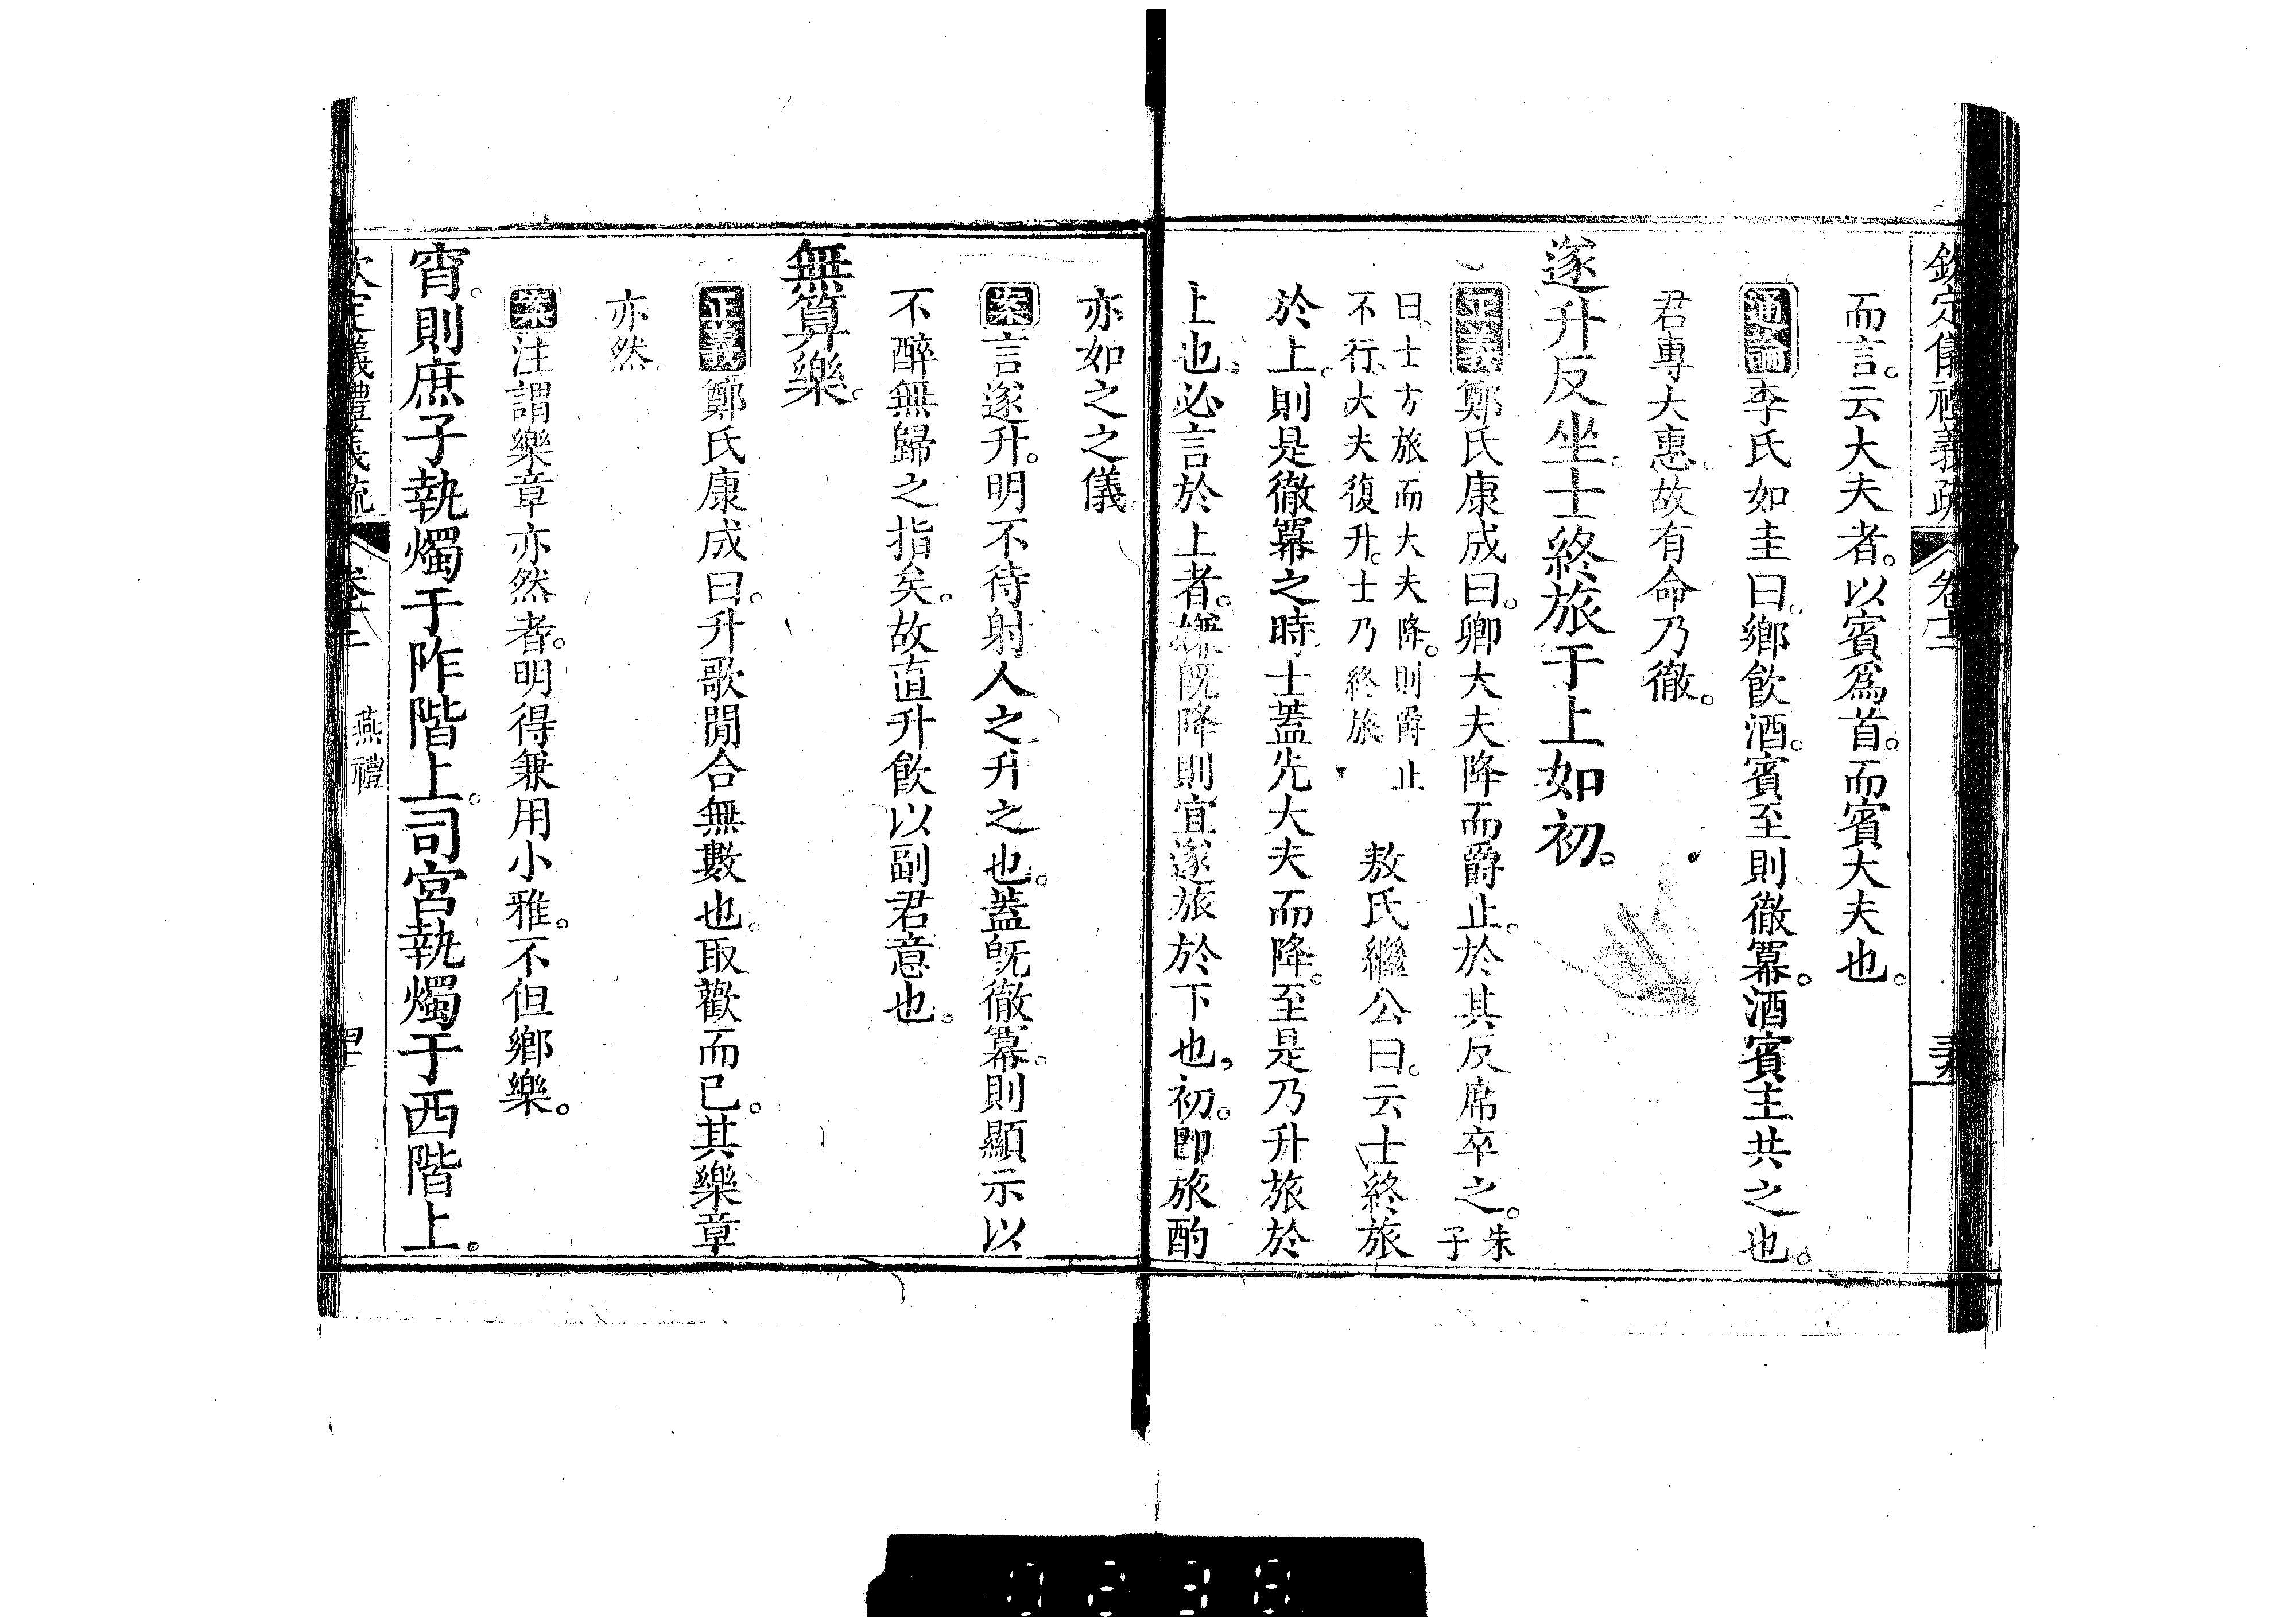 欽定儀禮義疏 卷十二
而言。云大夫者。以賓爲首。而賓大夫也。
通論李氏如圭曰。鄉飲酒。賓至則徹冪。酒賓主共之也。
君專大惠。故有命乃徹。
遂升反坐。士終旅于上如初。
正義鄭氏康成曰。卿大夫降而爵止。於其反席卒之。朱子
曰。士方旅而大夫降。則爵止
不行。大夫復升。士乃終旅
敖氏繼公曰。云士終旅
於上。則是徹冪之時。士蓋先大夫而降。至是乃升旅於
上也。必言於上者。嫌旣降則宜遂旅於下也。初。卽旅酌
亦如之之儀。
案言遂升。明不待射人之升之也。蓋旣徹冪。則顯示以
不醉無歸之指矣。故直升飲以副君意也。
無算樂。
正義鄭氏康成曰。升歌閒合無數也。取歡而已。其樂章
亦然
案注謂樂章亦然者。明得兼用小雅。不但鄉樂。
宵。則庶子執燭于阼階上。司宮執燭于西階上。
欽定儀禮義疏 卷十二 燕禮 四十